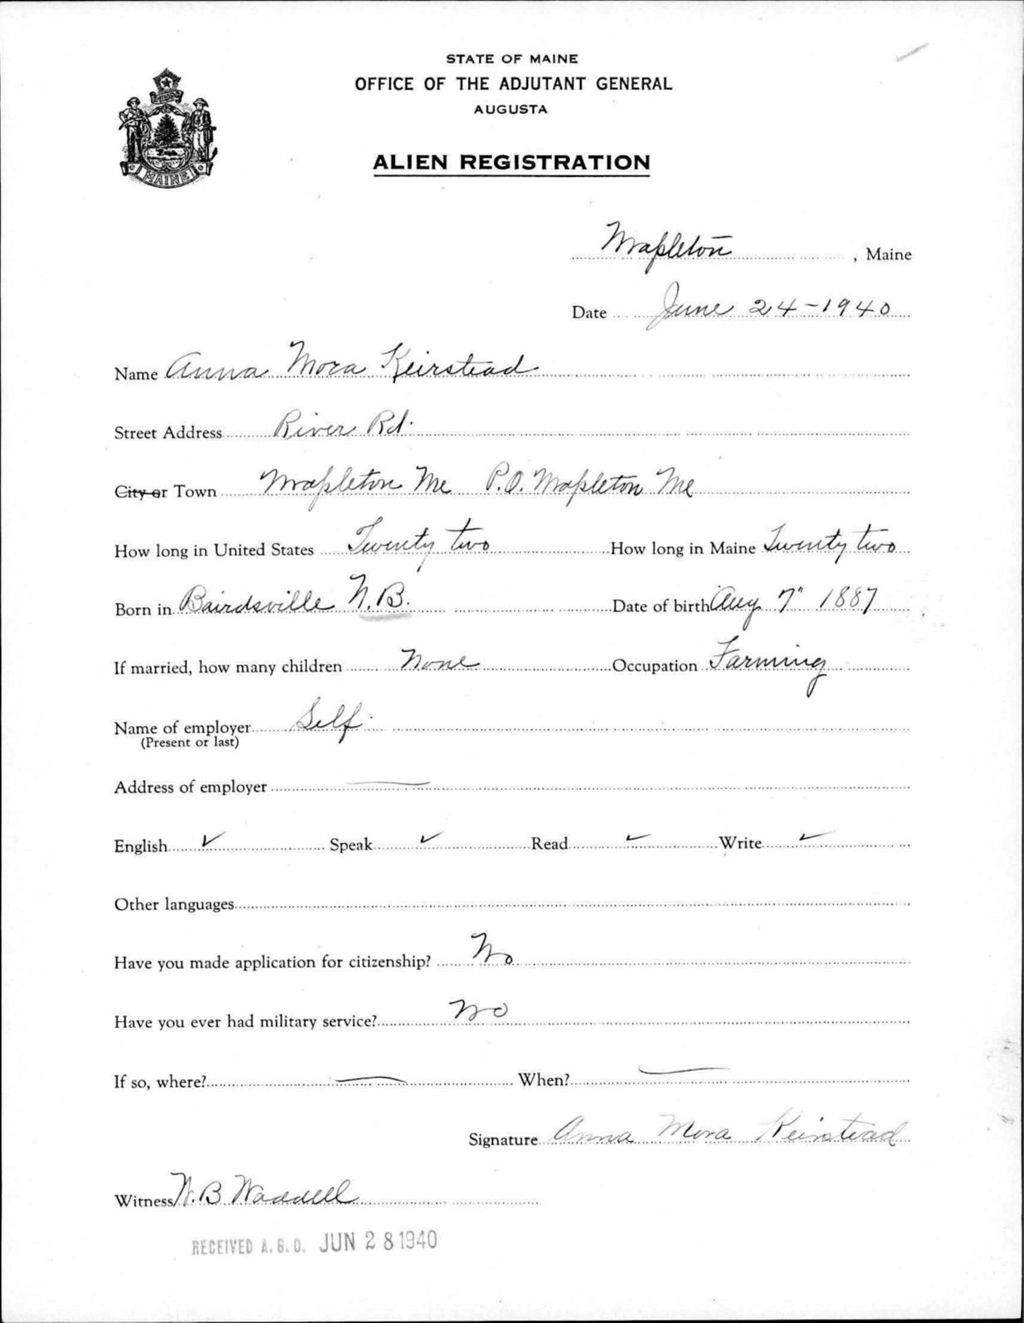 STATE OF MAINE
OFFICE OF THE ADJUTANT GENERAL
AUGUSTA
ALIEN REGISTRATION
MAINE
Mapleton, Maine
Date June 24-1940
Name Anna Mora Keirstead
Street Address River Rd.
City or Town Mapleton Me P.O. Mapleton Me
How long in United States Twenty two How long in Maine Twenty two
Born in Bairdsville N.B. Date of birth Aug 7" 1887
If married, how many children None Occupation Farming
Name of employer Self.
(Present or last)
Address of employer —
English ✓ Speak ✓ Read ✓ Write ✓
Other languages
Have you made application for citizenship? No
Have you ever had military service? No
If so, where? — When? —
Signature Anna Mora Keirstead
Witness N.B Waddell
RECEIVED A.G.O. JUN 28 1940